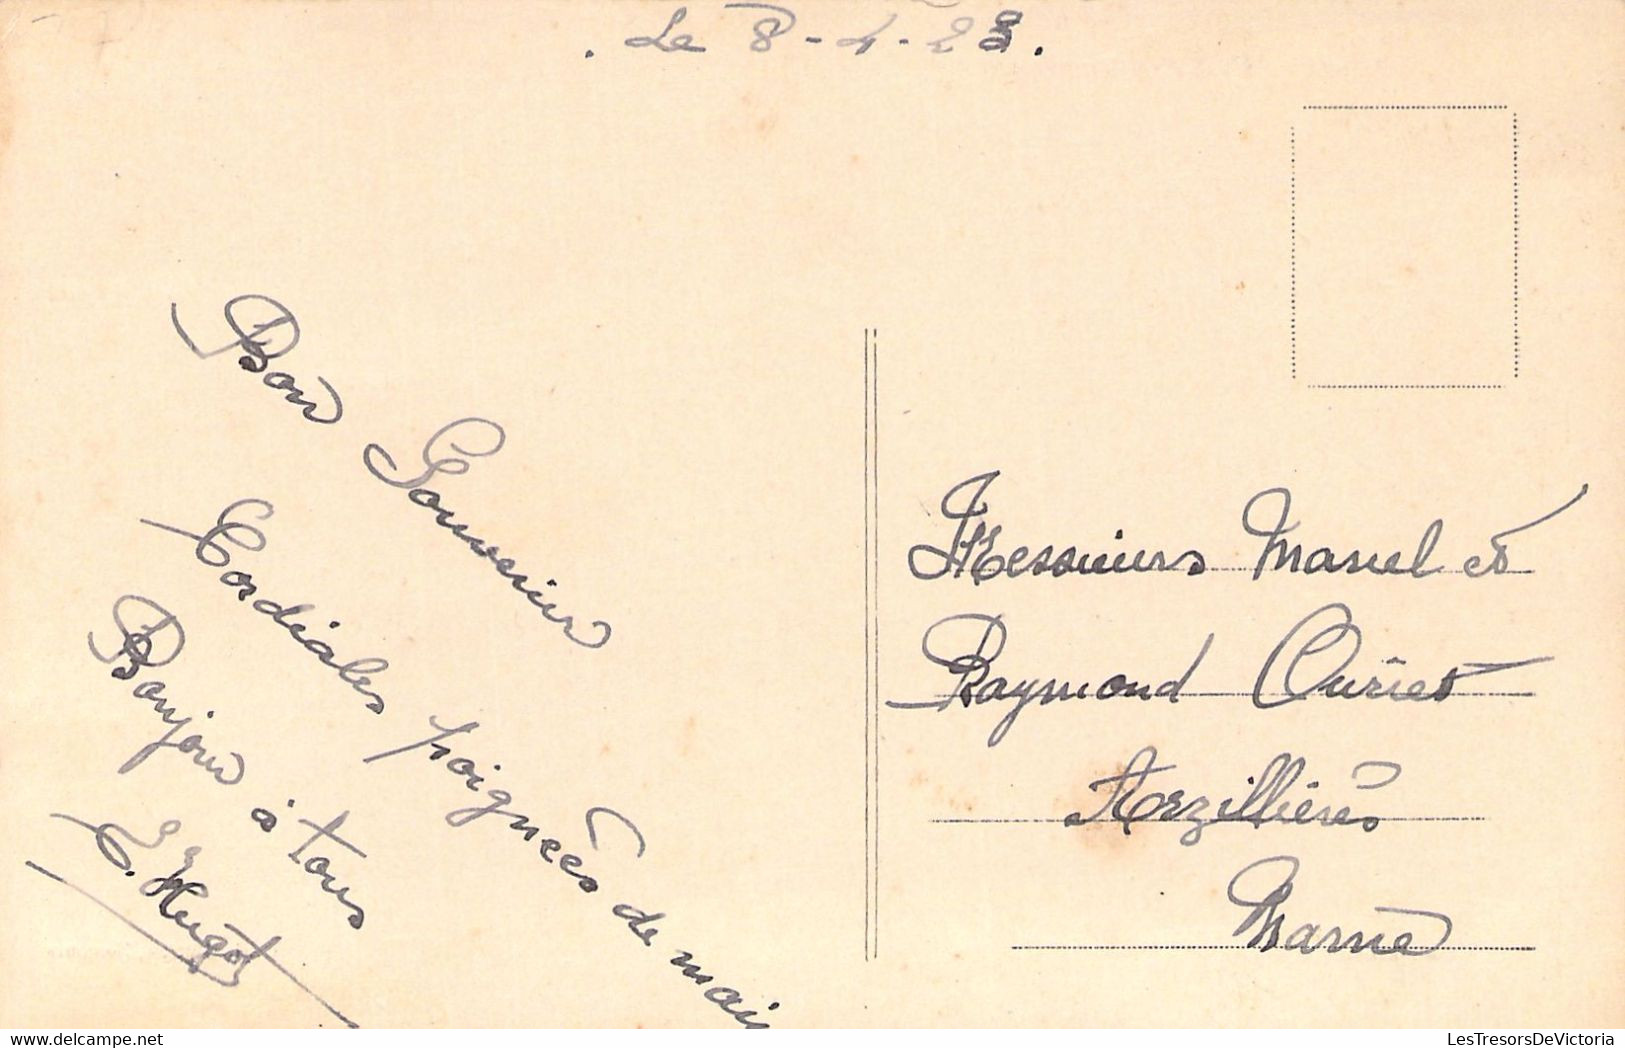 . Le 8-4-23.
Bon Souvenir
Cordiales poignées de main
Bonjour à tous
E. Hugot
Messieurs Marcel et
Raymond Ouriet
Arzillières
Marne
LesTresorsDeVictoria